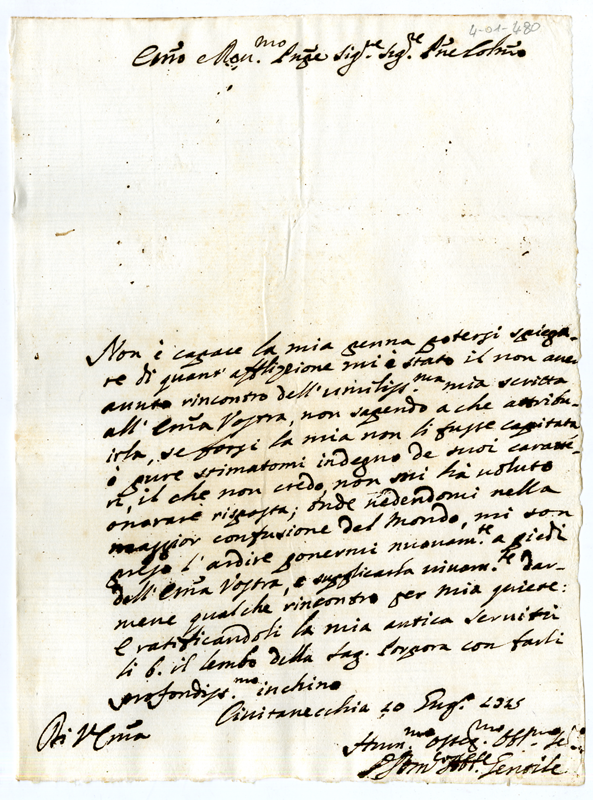 4-01-480
Em̃o e Reu.mo Pñpe Sig.re Sig.re Pñe Colmo
Non è capace la mia penna potersi spiega-
re di quant'afflizione mi è stato il non aver
auuto rincontro dell'umiliss.ma mia scritta
all'Em̃a Vostra, non sapendo a che attribu-
irla, se forsi la mia non li fusse capitata
ò pure stimatomi indegno de suoi caratte-
ri, il che non credo, non mi hà voluto
onorare risposta; onde vedendomi nella
maggior confusione del Mondo, mi son
preso l'ardire ponermi nuouam.te a piedi
dell'Em̃a Vostra, e supplicarla viuam.te dar-
mene qualche rincontro per mia quiete:
E ratificandoli la mia antica seruitù
li b. il lembo della Sag. Porpora con farli
profondiss.mo inchino
Ciuitauecchia 10 Lug.
Di V. Em̃a
Hum.mo Osseq.mo Obb.mo
Gentile